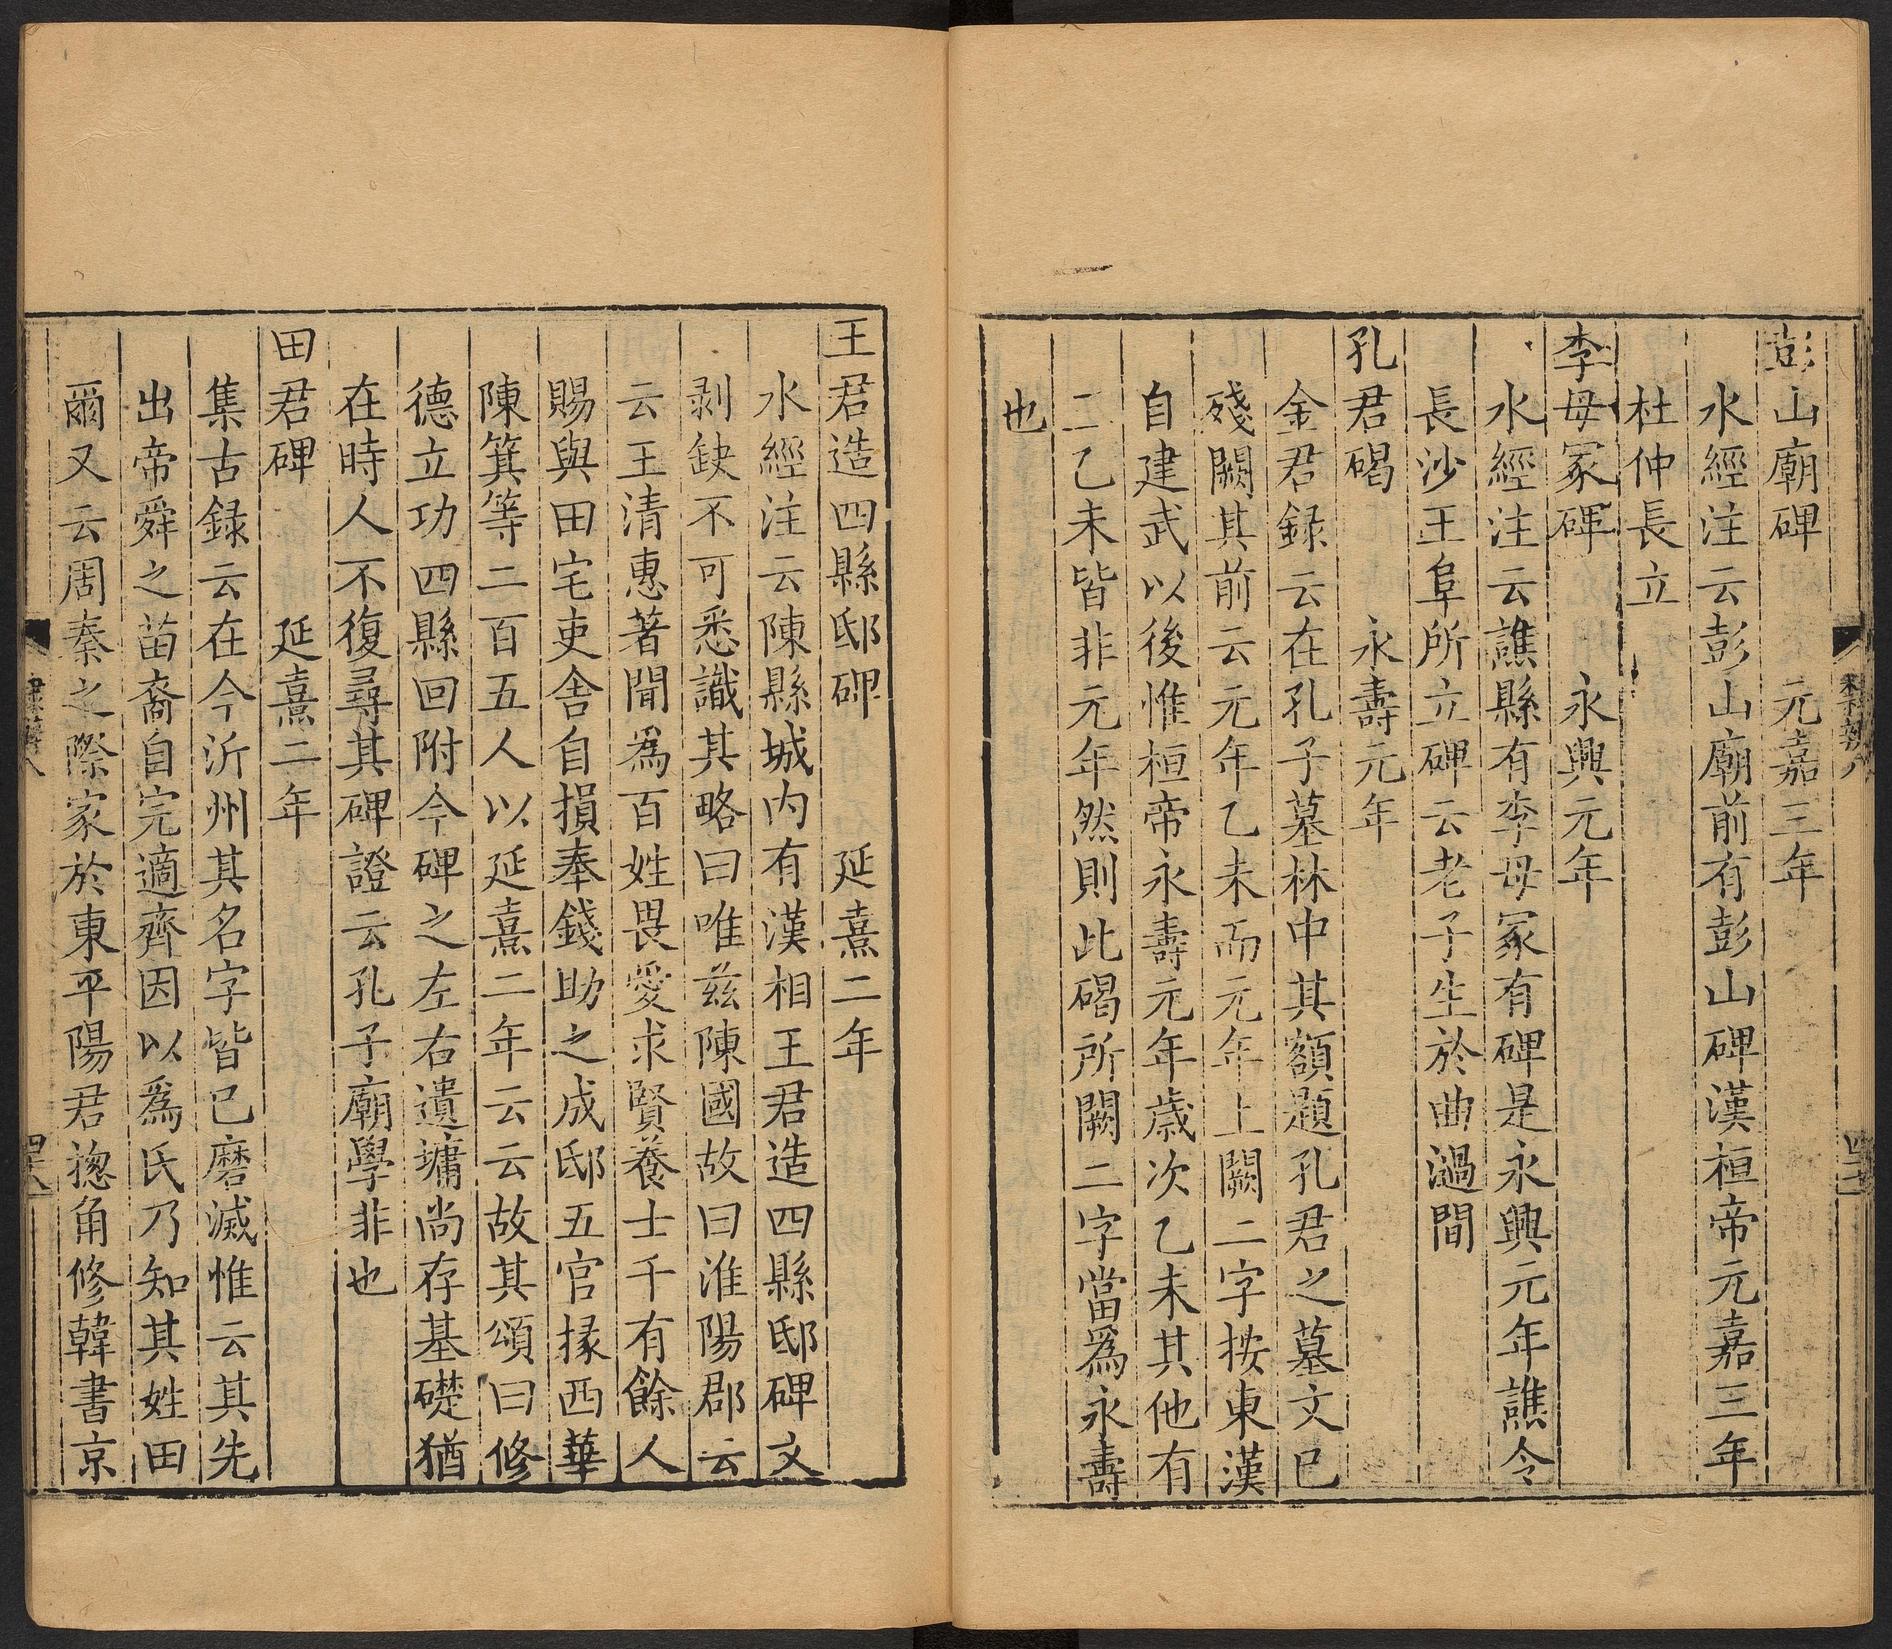 彭山廟碑　元嘉三年
水經注云彭山廟前有彭山碑漢桓帝元嘉三年
杜仲長立
李母冢碑　永興元年
水經注云譙縣有李母冢有碑是永興元年譙令
長沙王阜所立碑云老子生於曲濄間
孔君碣　永壽元年
金君録云在孔子墓林中其額題孔君之墓文已
殘闕其前云元年乙未而元年上闕二字按東漢
自建武以後惟桓帝永壽元年歳次乙未其他有
二乙未皆非元年然則此碣所闕二字當爲永壽
也
王君造四縣邸碑　延熹二年
水經注云陳縣城内有漢相王君造四縣邸碑文
剥缺不可悉識其略曰唯兹陳國故曰淮陽郡云
云王清惠著聞爲百姓畏愛求賢養士千有餘人
賜與田宅吏舍自損奉錢助之成邸五官掾西華
陳箕等二百五人以延熹二年云云故其頌曰修
德立功四縣回附今碑之左右遺墉尚存基礎猶
在時人不復尋其碑證云孔子廟學非也
田君碑　延熹二年
集古録云在今沂州其名字皆已磨滅惟云其先
出帝舜之苗裔自完適齊因以爲氏乃知其姓田
爾又云周秦之際家於東平陽君揔角修韓書京